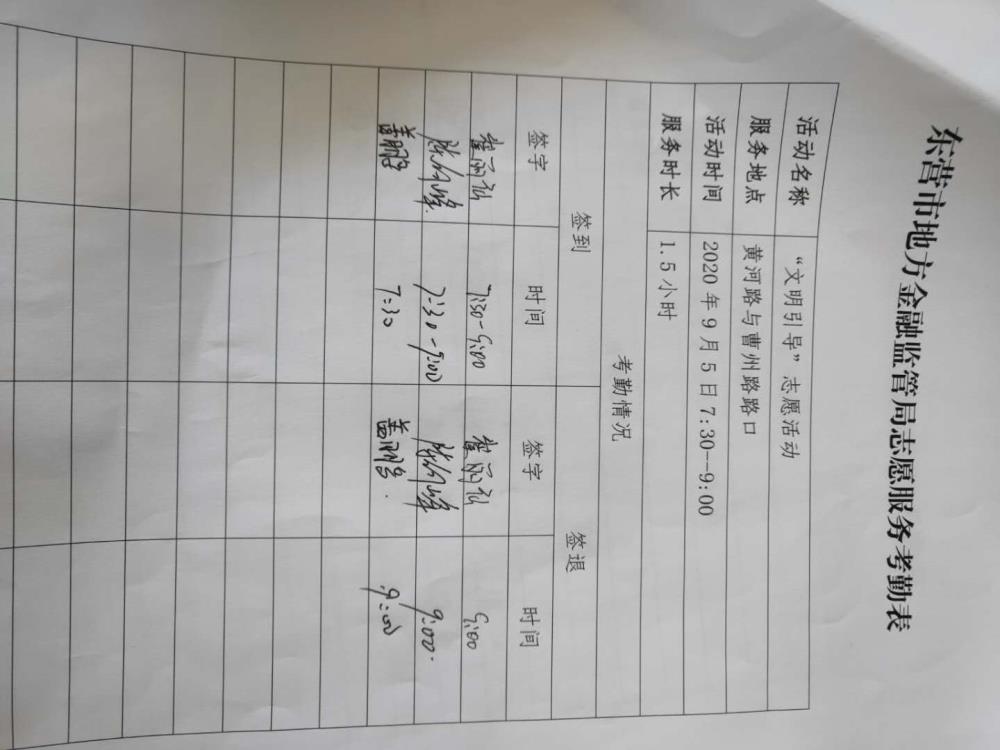 东营市地方金融监管局志愿服务考勤表
活动名称 “文明引导”志愿活动
服务地点 黄河路与曹州路路口
活动时间 2020年9月5日7:30--9:00
服务时长 1.5小时
考勤情况
签到 签退
签字 时间 签字 时间
7:30-9:00 9:00
7:30-9:00 9:00.
7:30 9:00